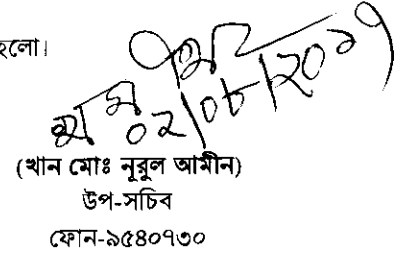 হলো।
০২/০৮/২০১৭
(খান মোঃ নূরুল আমীন)
উপ-সচিব
ফোন-৯৫৪০৭৩০